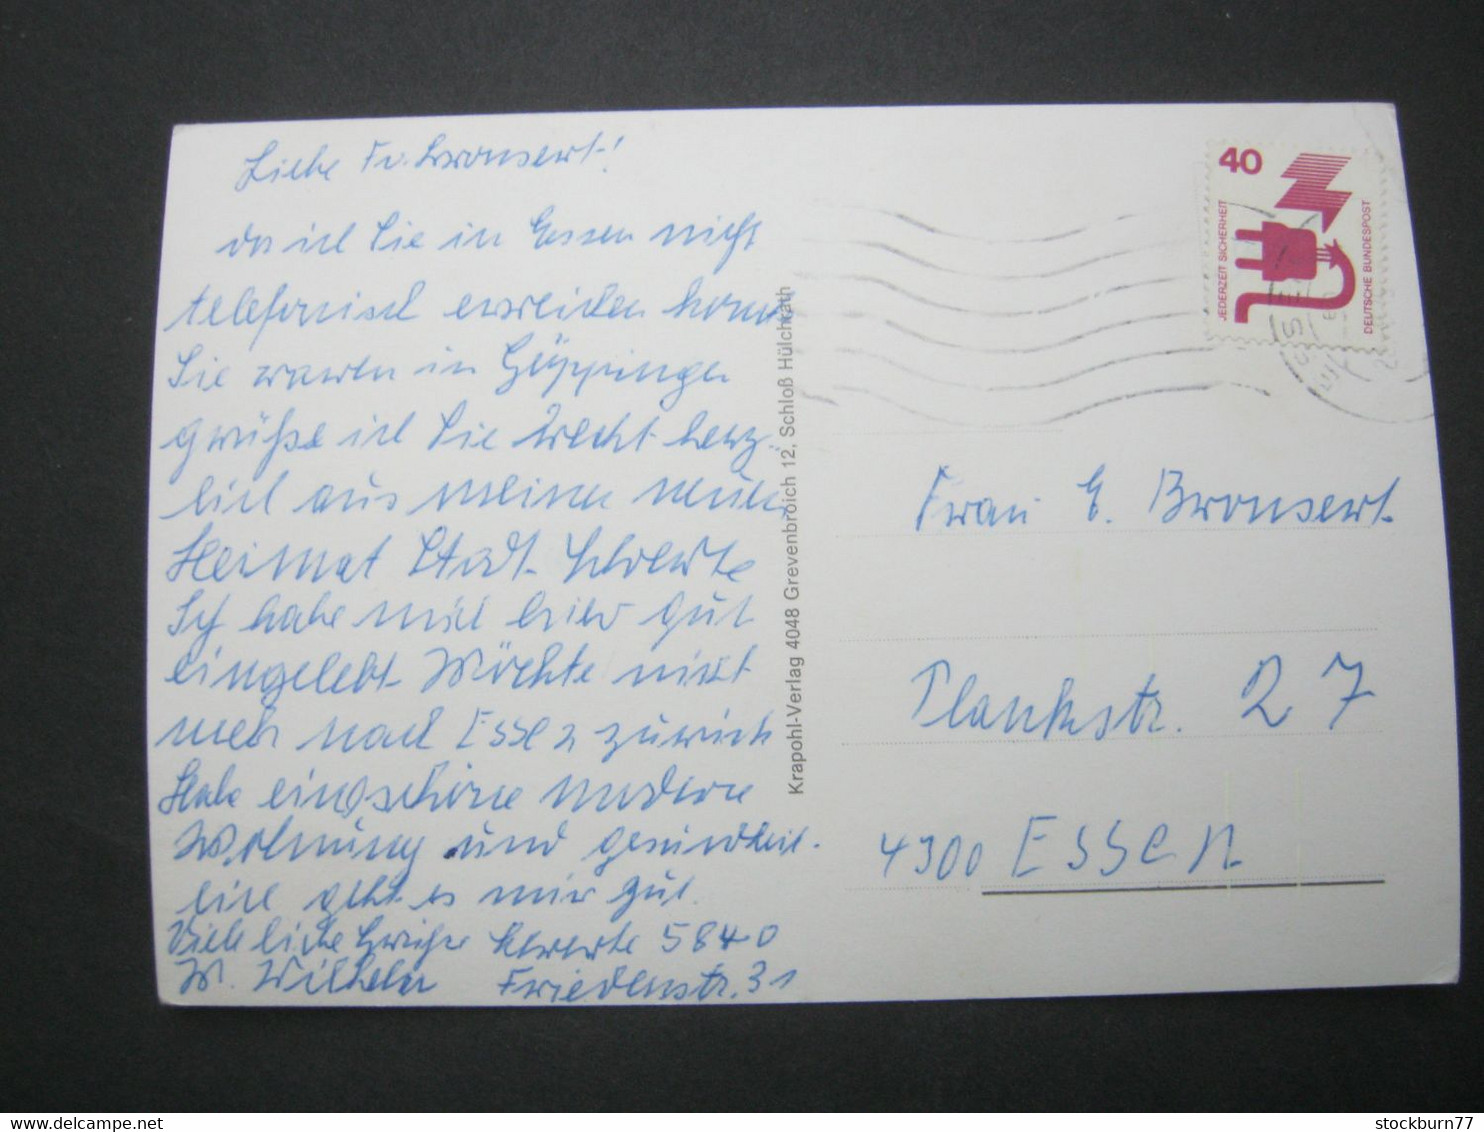 Liebe Fr. Bronsert!
da ich Sie in Essen nicht
telefonisch erreichen konnt
Sie waren in Göppingen
grüße ich Sie recht herz-
lich aus meiner neuen
Heimat Stadt Schwerte
Ich habe mich hier gut
eingelebt Möchte nicht
mehr nach Essen zurück
Habe eine schöne moderne
Wohnung und gesundheit-
lich geht es mir gut.
Viele liebe Grüße Schwerte 5840
W. Wilhelm Friedenstr. 31
Krapohl-Verlag 4048 Grevenbroich 12, Schloß Hülchrath
40
JEDERZEIT SICHERHEIT
DEUTSCHE BUNDESPOST
Frau E. Bronsert
Plankstr. 27
4300 Essen
stockburn77